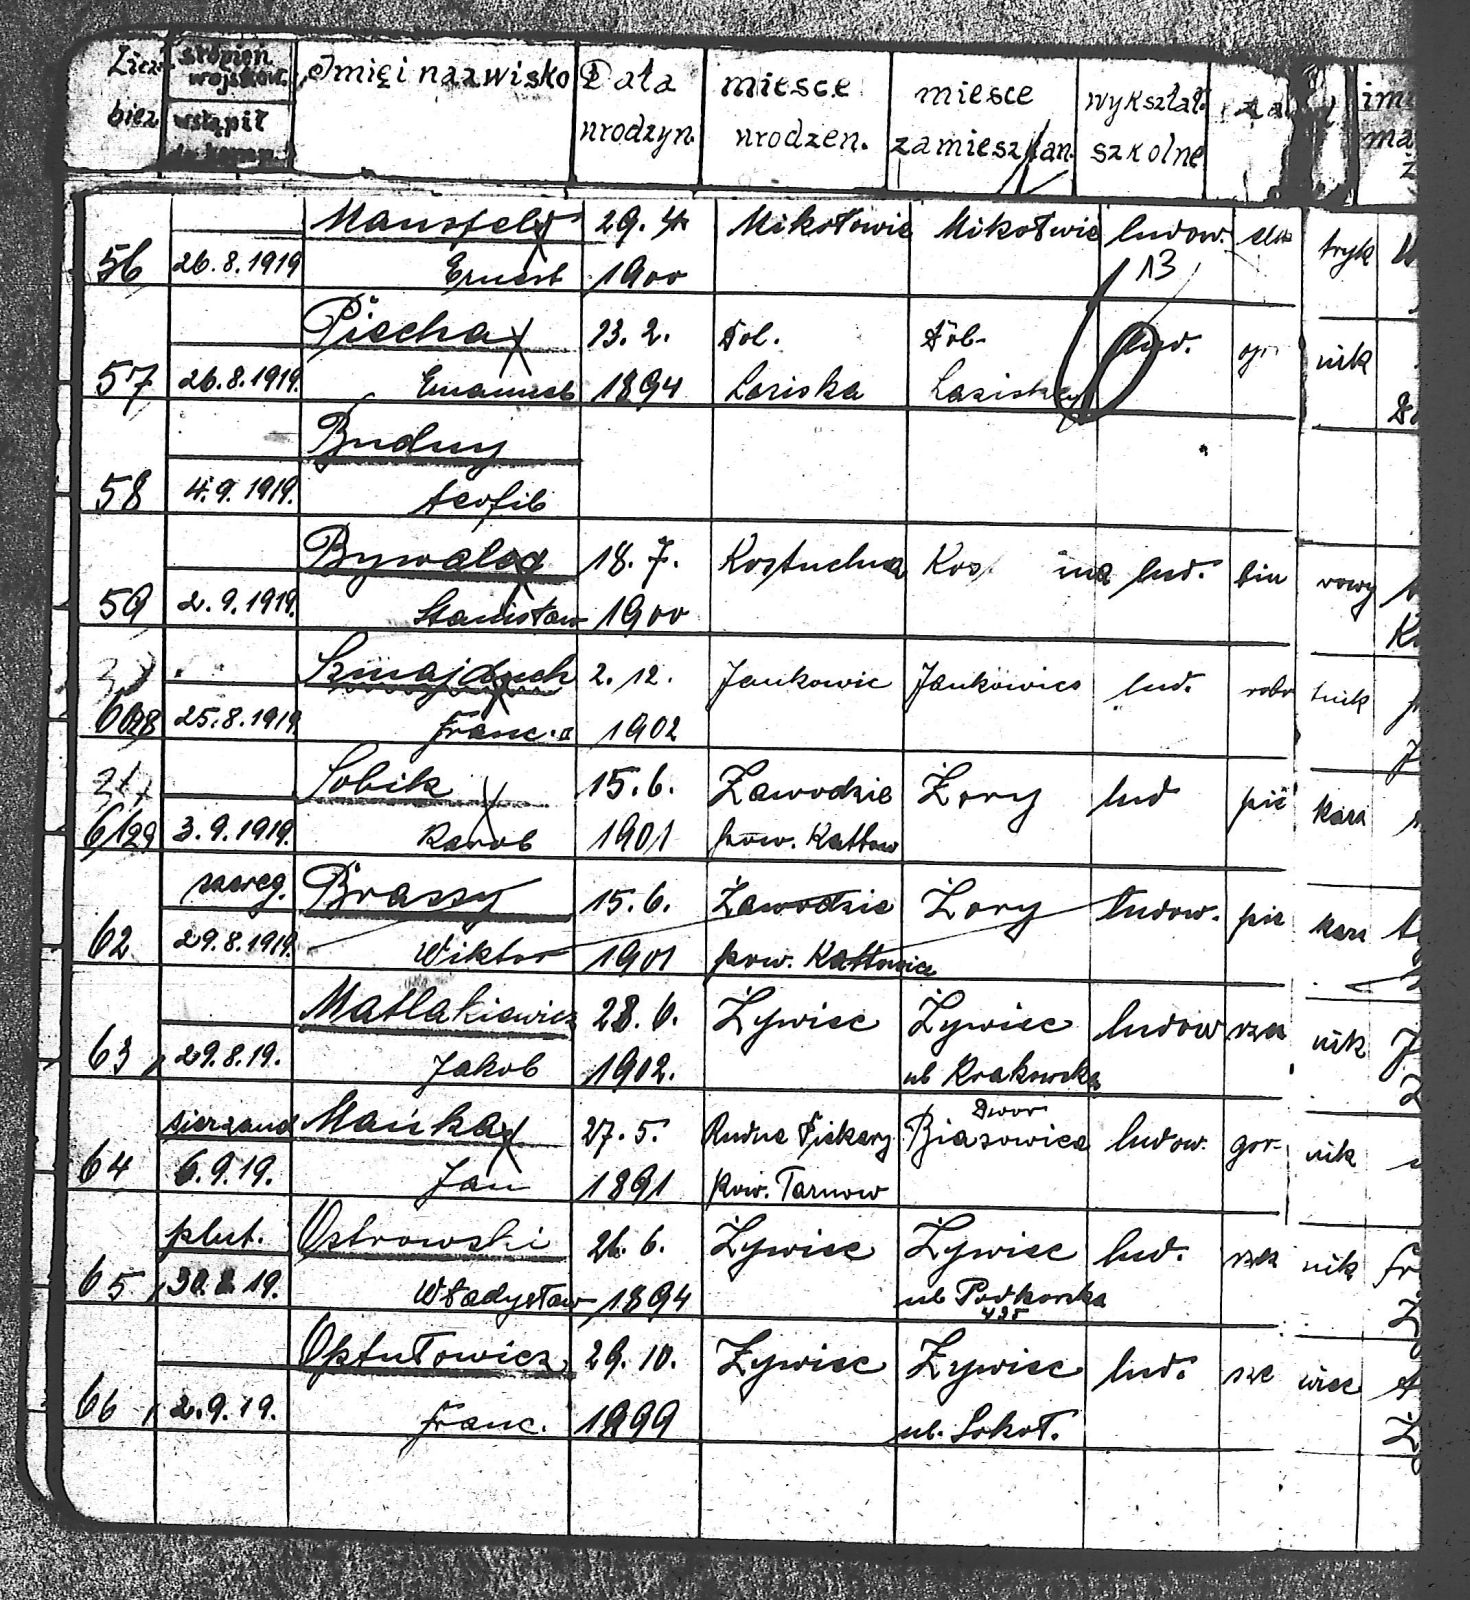 Licz. stopień wojskow. Imię i nazwisko Data miesce miesce wykształ.
bież wstąpił do komp. urodzyn. urodzen. zamieszkan. szkolne
Mansfeld 29. 4. Mikołowie Mikołwie ludow. elek tryk
56 26.8.1919 Ernest 1900 13
Piecha 13. 2. Dol. Dol- lud. nik
57 26.8.1919. Emanuel 1894 Laziska Laziska
Budny
58 4.9.1919. Teofil
Bywalec 18. 7. Kostuchna Kos. na lud. biu rowy
59 2.9.1919. Stanisław 1900
Szmajduch 2. 12. Jankowic Jankowice lud. robo tnik
60 28 25.8.1919 Franc. 1902
Sobik 15. 6. Zawodzie Żory lud pie kara
61 29 3.9.1919. Karol 1901 pow. Kattow
szereg. Brassy 15. 6. Zawodzie Żory ludow. pie kara
62 29.8.1919. Wiktor 1901 pow. Kattowice
Matlakiewicz 28. 6. Żywiec Żywiec ludow nik
63 29.8.19. Jakob 1902. ul Krakowska
sierzand Mańka 27. 5. Rudne Piekary Dwor Biasowice ludow. gor- nik
64 6.9.19. Jan 1891 Pow. Tarnow
plut. Ostrowski 26. 6. Żywiec Żywiec lud. nik
65 30.8.19. Władysław 1894 ul
Optułowicz 29. 10. Żywiec Żywiec lud. sze wiec
66 2.9.19. Franc. 1899 ul. Sokoł.